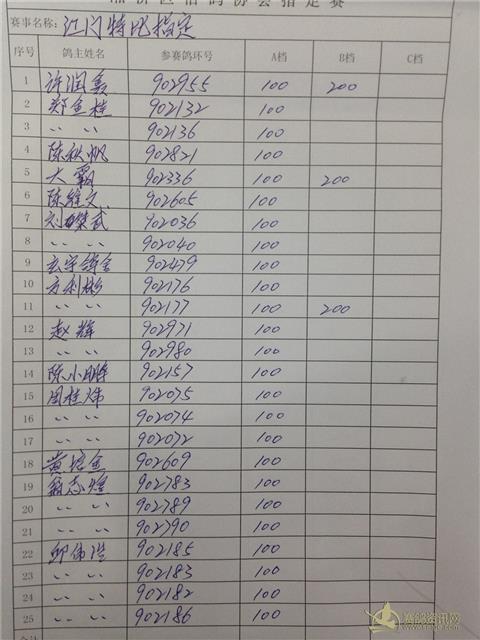 湘桥区信鸽协会指定赛
赛事名称: 江门特比指定
序号 鸽主姓名 参赛鸽环号 A档 B档 C档
1 许润 902955 100 200
2 郑金桂 902132 100
3 〃 〃 902136 100
4 陈秋帆 902821 100
5 大霸 902336 100 200
6 陈维文 902605 100
7 刘武 902036 100
8 〃 〃 902040 100
9 902479 100
10 方利彬 902176 100
11 〃 〃 902177 100 200
12 赵辉 902971 100
13 〃 〃 902980 100
14 陈小鹏 902157 100
15 周桂炜 902075 100
16 〃 〃 902074 100
17 〃 〃 902072 100
18 黄培金 902609 100
19 翁志煌 902783 100
20 〃 〃 902789 100
21 〃 〃 902790 100
22 邱伟浩 902185 100
23 〃 〃 902183 100
24 〃 〃 902182 100
25 〃 〃 902186 100
合计
赛鸽资讯网